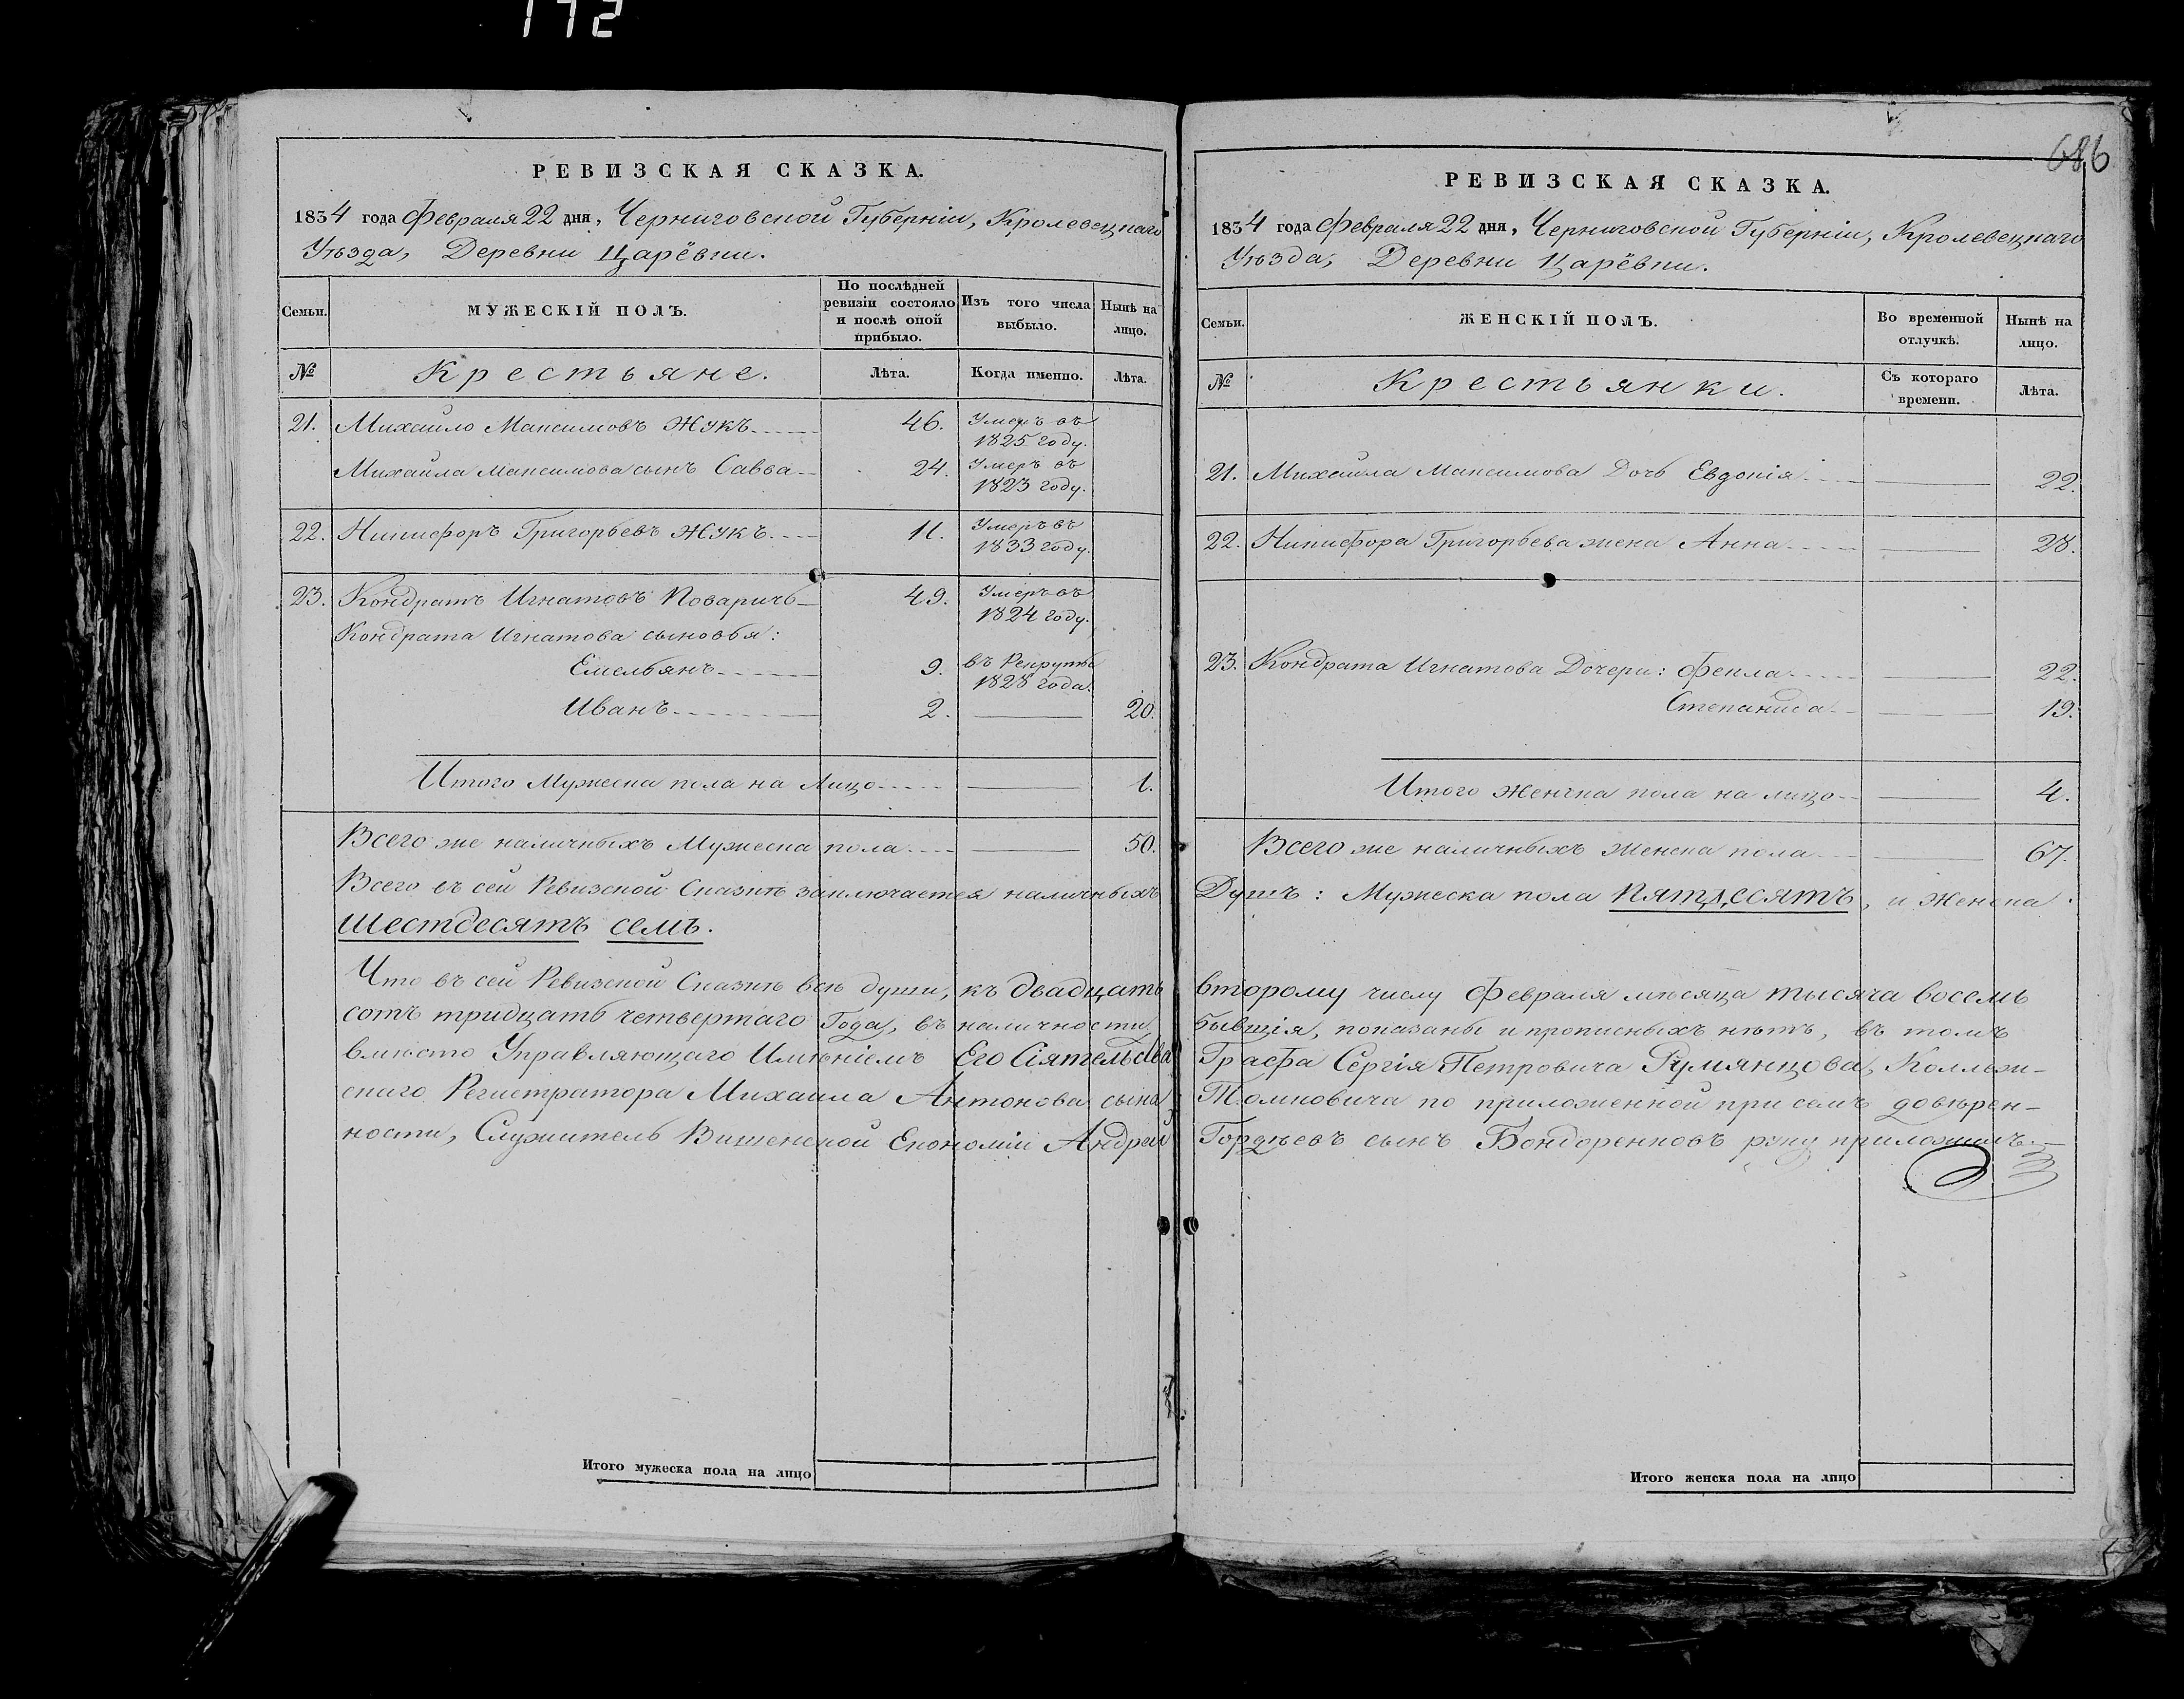 172
686
РЕВИЗСКАЯ СКАЗКА.
1834 года Февраля 22 дня, Черниговской Губерніи, Кролевецкаго
Уѣзда, Деревни Царёвки.
Семьи.
МУЖЕСКІЙ ПОЛЪ.
По послѣдней
ревизіи состояло
и послѣ оной
прибыло.
Изъ того числа
выбыло.
Нынѣ на
лицо.
№
Крестьяне.
Лѣта.
Когда именно.
Лѣта.
21. Михайло Максимовъ Жукъ 46. Умеръ въ
1825 году.
Михайла Максимова сынъ Савва 24. Умеръ въ
1823 году.
22. Никифоръ Григорьевъ Жукъ 11. Умеръ въ
1833 году.
23. Кондратъ Игнатовъ Поваричь 49. Умеръ въ
1824 году.
Кондрата Игнатова сыновья:
Емельянъ 9. въ Рекрутѣ
1828 года.
Иванъ 2. 20.
Итого Мужеска пола на лицо 1.
Всего же наличныхъ Мужеска пола 50.
Всего въ сей Ревизской Сказкѣ заключается наличныхъ
шестдесятъ семь.
Что въ сей Ревизской Сказкѣ всѣ души, къ двадцать
сотъ тридцать четвертаго Года, въ наличности
вмѣсто Управляющаго Имѣніемъ Его Сіятельства
скаго Регистратора Михаила Антонова сына
ности, Служитель Вишенской Економіи Андрей
Итого мужеска пола на лицо
РЕВИЗСКАЯ СКАЗКА.
1834 года Февраля 22 дня, Черниговской Губерніи, Кролевецкаго
Уѣзда, Деревни Царёвки.
Семьи.
ЖЕНСКІЙ ПОЛЪ.
Во временной
отлучкѣ.
Нынѣ на
лицо.
№
Крестьянки.
Съ котораго
времени.
Лѣта.
21. Михайла Максимова Дочь Евдокія 22.
22. Никифора Григорьева жена Анна 28.
23. Кондрата Игнатова Дочери: Фекла 22.
Степанида 19.
Итого Женска пола на лицо 4.
Всего же наличныхъ Женска пола 67.
Душъ: Мужеска пола пятдесятъ, и Женска
второму числу Февраля мѣсяца тысяча восемь
бывшія, показаны и прописныхъ нѣтъ, въ томъ
Графа Сергія Петровича Румянцова, Коллежи-
по приложенной при семъ довѣрен-
Гордѣевъ сынъ Бондоренковъ руку приложилъ.
Итого женска пола на лицо